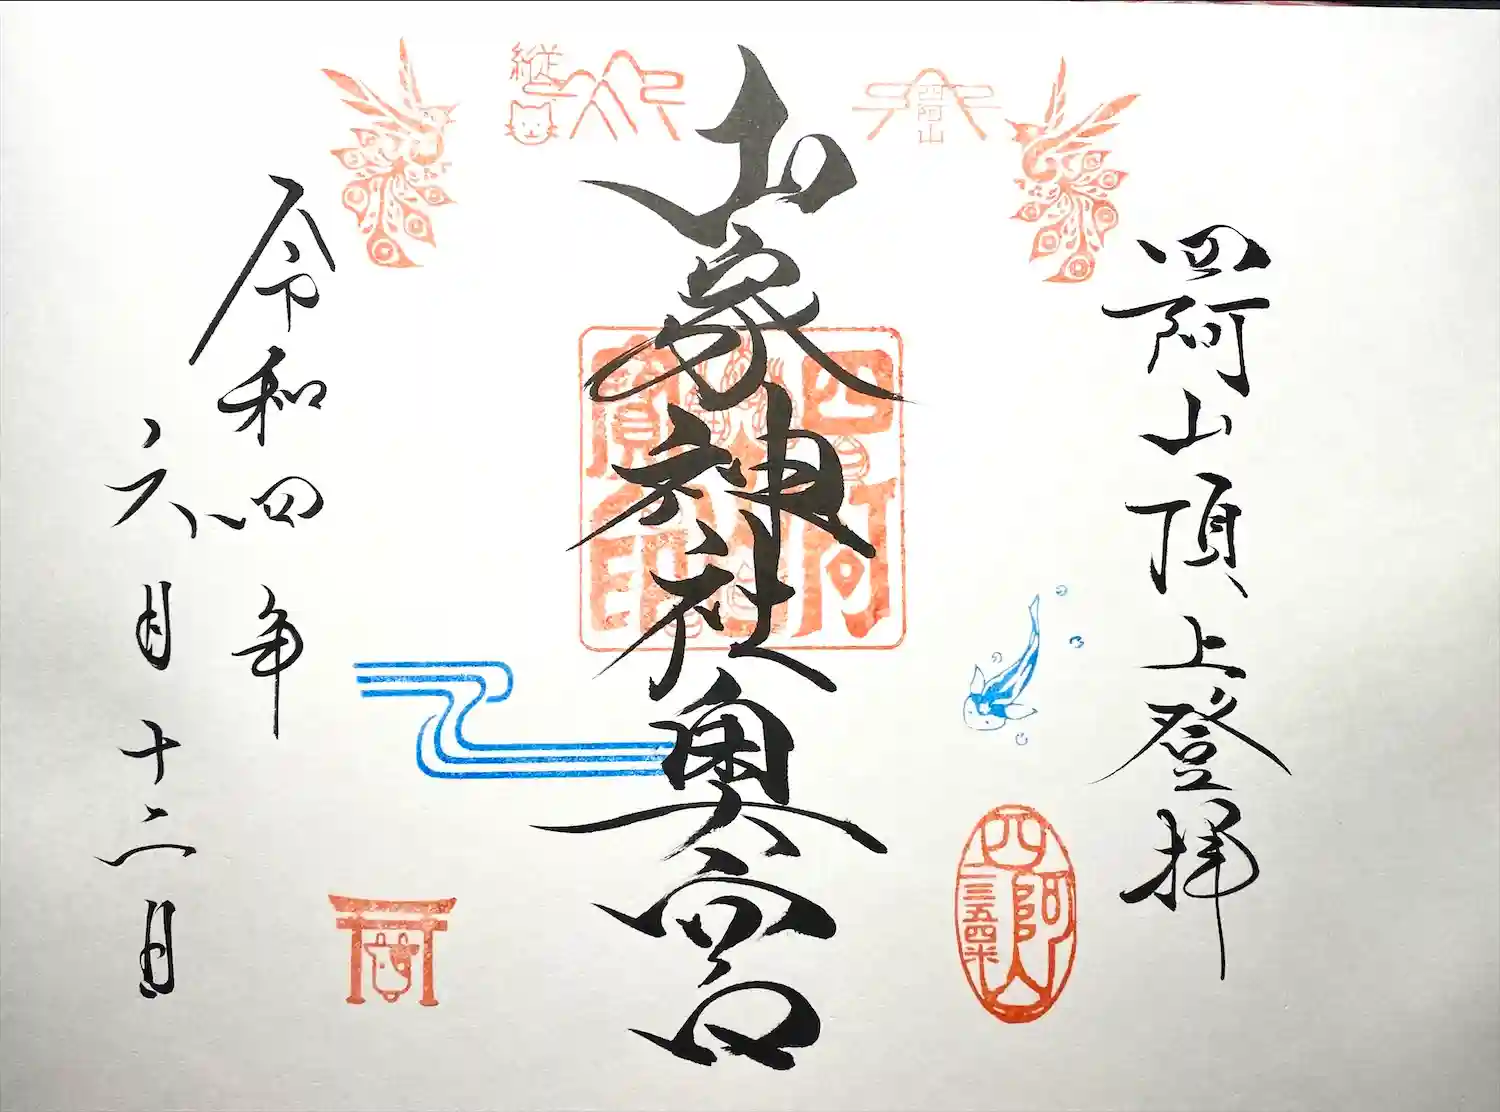 四阿山頂上登拝
四阿山
二三五四米
四阿山
山家神社奥宮
四阿
寶印
縦
令和四年
六月十二日